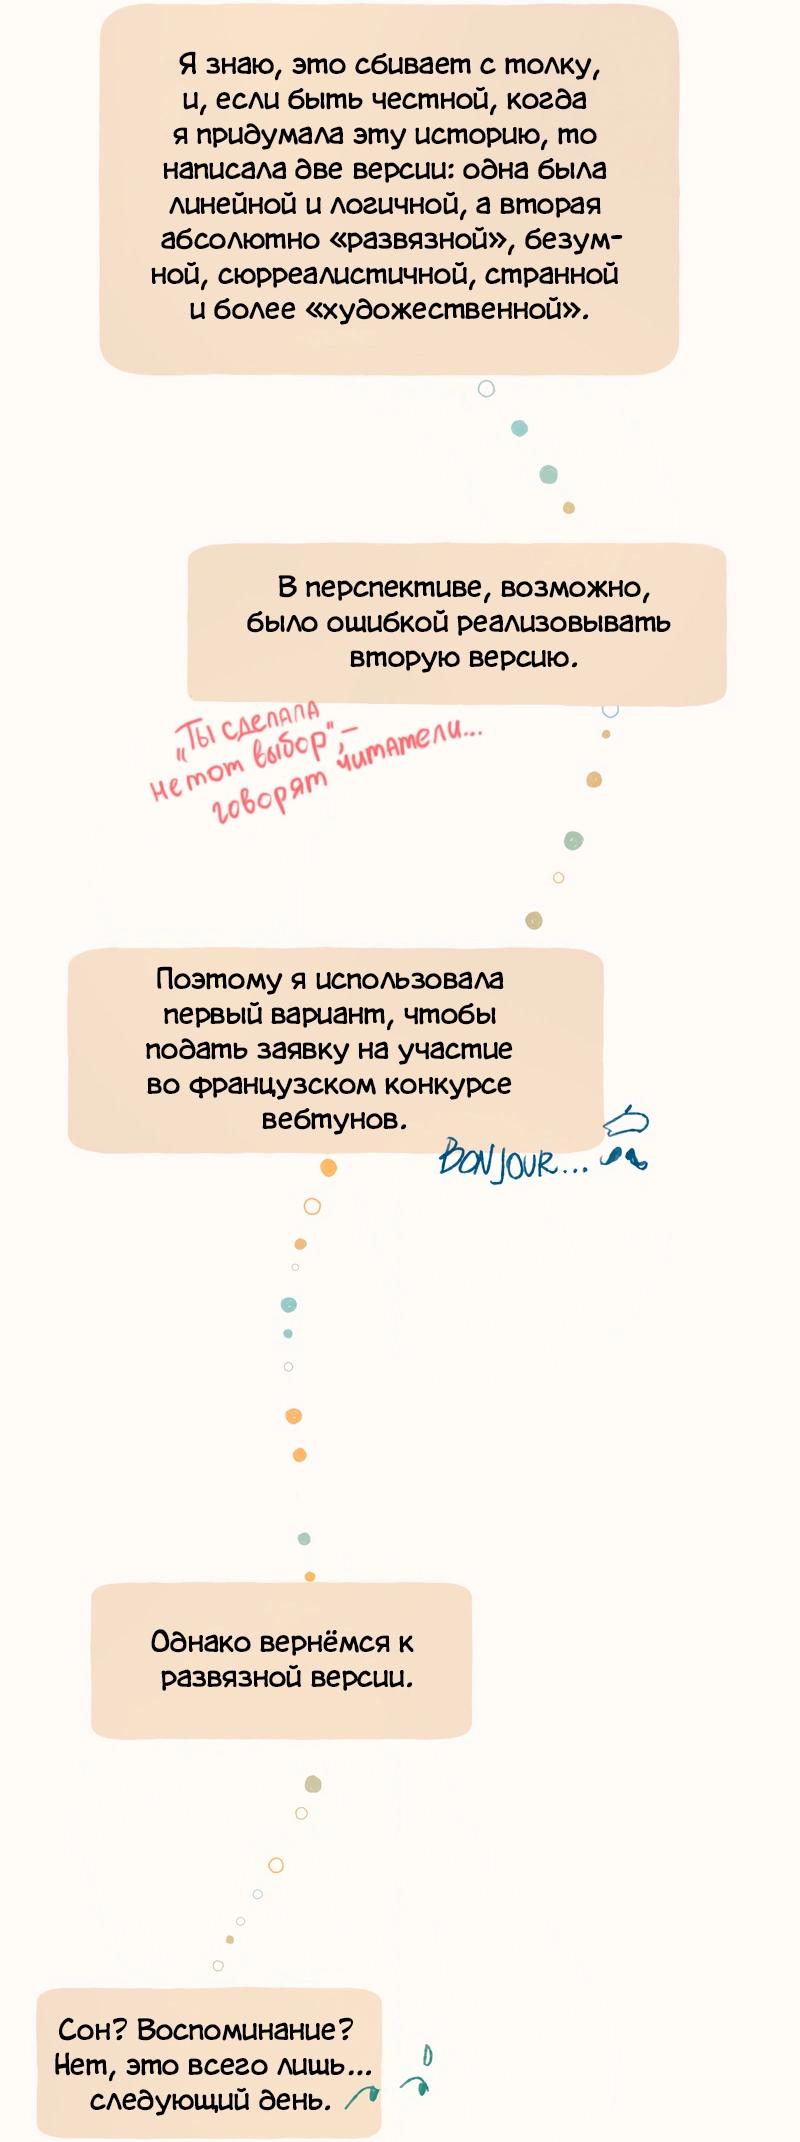 Я знаю, это сбивает с толку,
и, если быть честной, когда
я придумала эту историю, то
написала две версии: одна была
линейной и логичной, а вторая
абсолютно «развязной», безум-
ной, сюрреалистичной, странной
и более «художественной».
В перспективе, возможно,
было ошибкой реализовывать
вторую версию.
„Ты сделала
не тот выбор“,–
говорят читатели...
Поэтому я использовала
первый вариант, чтобы
подать заявку на участие
во французском конкурсе
вебтунов.
BONJOUR...
Однако вернёмся к
развязной версии.
Сон? Воспоминание?
Нет, это всего лишь...
следующий день.